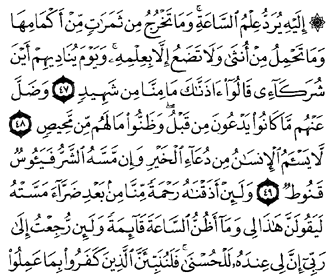 ۞ إِلَيْهِ يُرَدُّ عِلْمُ السَّاعَةِ ۚ وَمَا تَخْرُجُ مِن ثَمَرَٰتٍ مِّنْ أَكْمَامِهَا
وَمَا تَحْمِلُ مِنْ أُنثَىٰ وَلَا تَضَعُ إِلَّا بِعِلْمِهِۦ ۚ وَيَوْمَ يُنَادِيهِمْ أَيْنَ
شُرَكَآءِى قَالُوٓا۟ ءَاذَنَّٰكَ مَا مِنَّا مِن شَهِيدٍ ٤٧ وَضَلَّ
عَنْهُم مَّا كَانُوا۟ يَدْعُونَ مِن قَبْلُ ۖ وَظَنُّوا۟ مَا لَهُم مِّن مَّحِيصٍ ٤٨
لَّا يَسْـَٔمُ ٱلْإِنسَٰنُ مِن دُعَآءِ ٱلْخَيْرِ وَإِن مَّسَّهُ ٱلشَّرُّ فَيَـُٔوسٌ
قَنُوطٌ ٤٩ وَلَئِنْ أَذَقْنَٰهُ رَحْمَةً مِّنَّا مِنۢ بَعْدِ ضَرَّآءَ مَسَّتْهُ
لَيَقُولَنَّ هَٰذَا لِى وَمَآ أَظُنُّ ٱلسَّاعَةَ قَآئِمَةً وَلَئِن رُّجِعْتُ إِلَىٰ
رَبِّىٓ إِنَّ لِى عِندَهُۥ لَلْحُسْنَىٰ ۚ فَلَنُنَبِّئَنَّ ٱلَّذِينَ كَفَرُوا۟ بِمَا عَمِلُوا۟